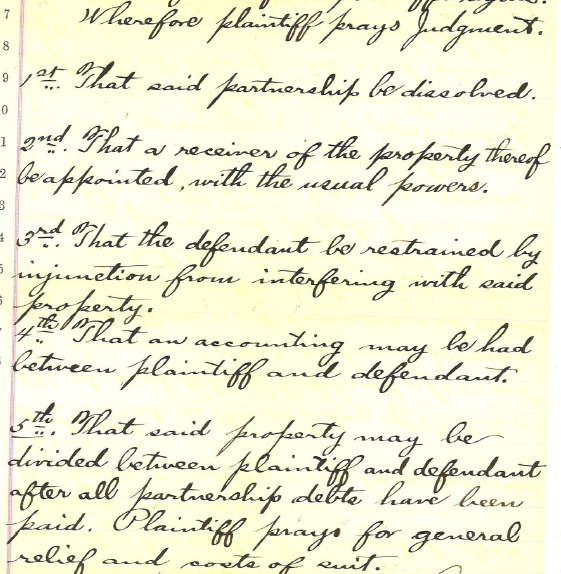 7 Wherefore plaintiff prays Judgment.
8
9 1st. That said partnership be dissolved.
0
1 2nd. That a receiver of the property thereof
2 be appointed, with the usual powers.
3
4 3rd. That the defendant be restrained by
5 injunction from interfering with said
6 property.
4th. That an accounting may be had
between plaintiff and defendant.
5th. That said property may be
divided between plaintiff and defendant
after all partnership debts have been
paid. Plaintiff prays for general
relief and costs of suit.